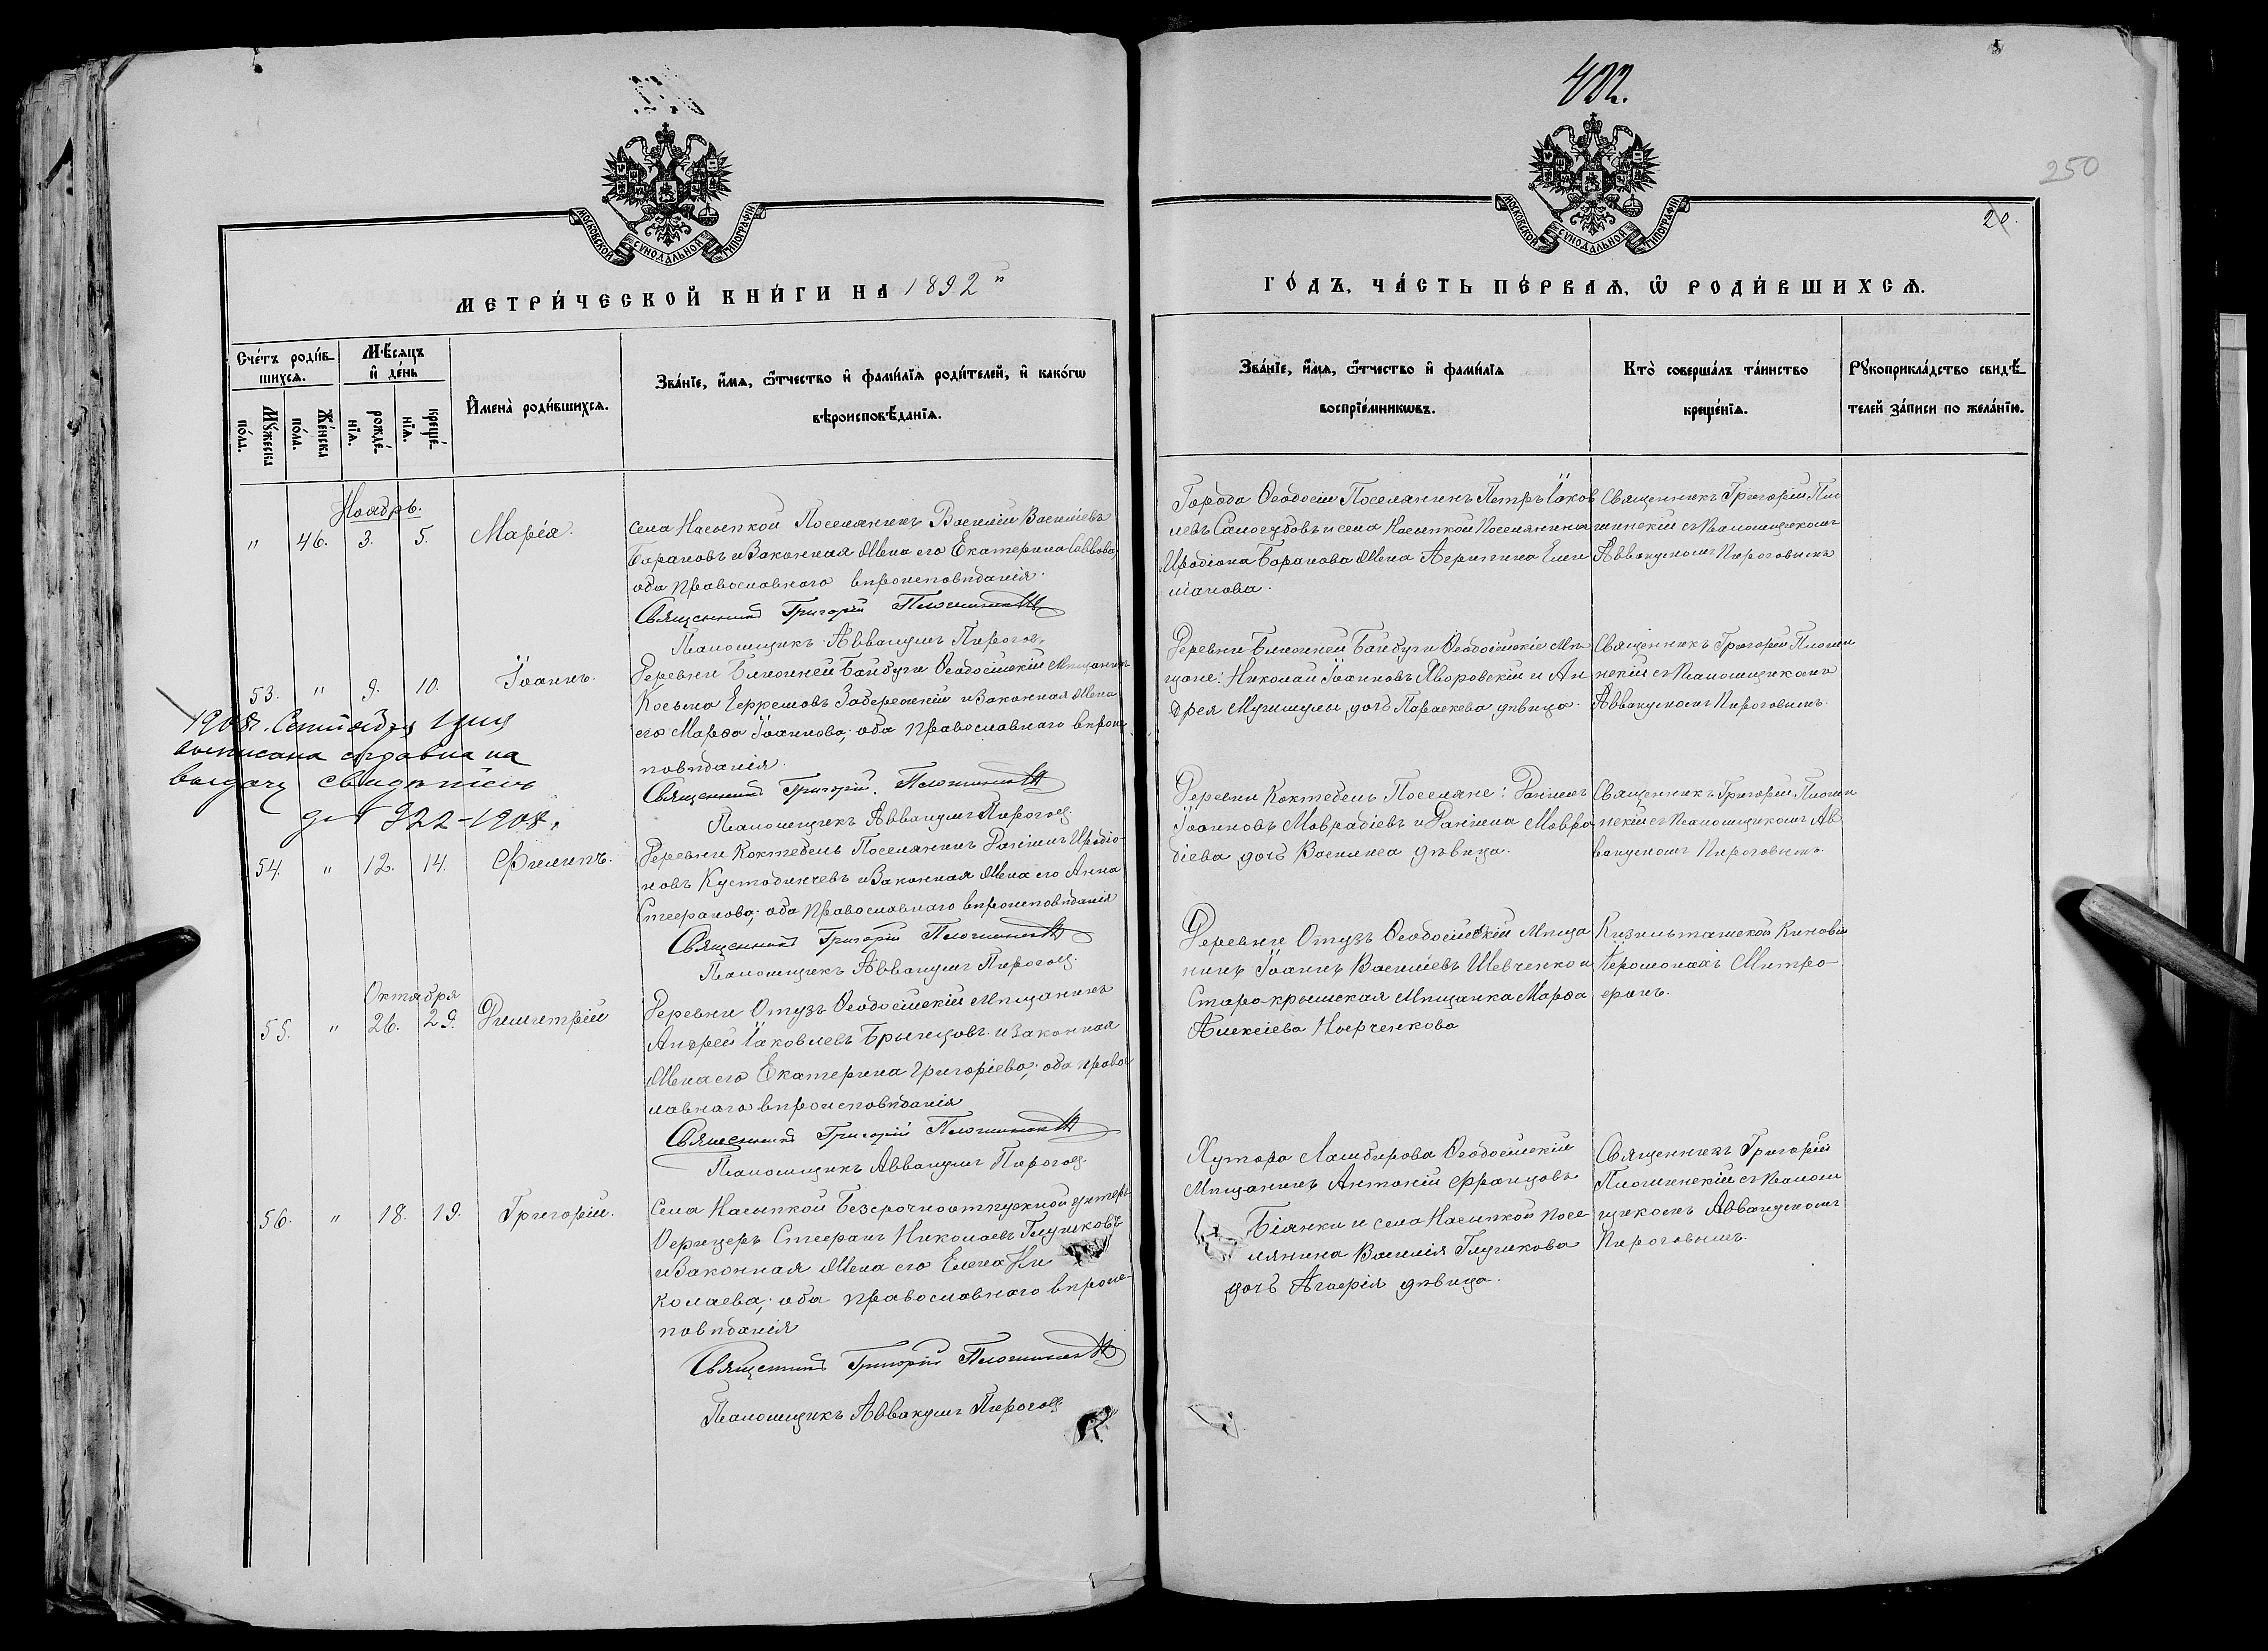 432.
250
МОСКОВСКОЙ СУНОДАЛЬНОЙ ТИПОГРАФІИ
МОСКОВСКОЙ СУНОДАЛЬНОЙ ТИПОГРАФІИ
МЕТРИ́ЧЕСКОЙ КНИ́ГИ НА 1892 й
ГО́ДЪ, ЧА́СТЬ ПЕ́РВАѦ, Ѿ РОДИ́ВШИХСѦ.
Сче́тъ роди́в-
шихсѧ.
Мѣ́сѧцъ
и҆ де́нь
Мꙋ́жеска
по́ла.
Же́нска
по́ла.
рожде́-
нїѧ.
креще́-
нїѧ.
И҆мена̀ роди́вшихсѧ.
Зва́нїе, и҆́мѧ, ѻ҆́тчество и҆ фами́лїѧ роди́телей, и҆ како́гѡ
вѣроисповѣ́данїѧ.
Зва́нїе, и҆́мѧ, ѻ҆́тчество и҆ фами́лїѧ
воспрїе́мникѡвъ.
Кто̀ соверша́лъ та́инство
креще́нїѧ.
Рꙋкоприкла́дство свидѣ́-
телей за́писи по жела́нїю.
Ноябрь.
" 46. 3. 5. Марія.
Села Насыпкой Поселянинъ Василій Василіевъ
Барановъ и Законная Жена его Екатерина Саввова,
оба православного вѣроисповѣданія.
Священникъ Григорій
Псаломщикъ Аввакумъ Пироговъ
Города Ѳеодосіи Поселянинъ Петръ Іаков
левъ Самогубовъ и села Насыпкой Поселянина
Иродіона Баранова Жена Агриппина Еми
ліанова.
Священникъ Григорій Пло
шинскій съ Псаломщикомъ
Аввакумомъ Пироговымъ
53. " 9. 10. Іоаннъ.
Деревни Ближней Байбуги Ѳеодосійскій Мѣщанинъ
Косьма Ефремовъ Забережній и Законная Жена
его Марѳа Іоаннова; оба православного вѣроис
повѣданія.
Священникъ Григорій
Псаломщикъ Аввакумъ Пироговъ
Деревни Ближней Байбуги Ѳеодосійскіе Мѣ
щане: Николай Іоанновъ Яворовскій и Ан
дрея дочь Параскева дѣвица.
Священникъ Григорій Плоши
нскій съ Псаломщикомъ
Аввакумомъ Пироговымъ.
1908г. Сентября 1 дня
выписана справка на
выдачу
д № 322-1908.
54. " 12. 14. Филиппъ.
Деревни Коктебель Поселянинъ Даніилъ Иродіо
новъ Кустодинчевъ и Законная Жена его Анна
Стефанова; оба православного вѣроисповѣданія
Священникъ Григорій
Псаломщикъ Аввакумъ Пироговъ
Деревни Коктебель Поселяне: Даніилъ
Іоанновъ Маврадіевъ и Даніила Мавра
діева дочь Василиса дѣвица.
Священникъ Григорій Плоши
нскій съ Псаломщикомъ Ав
вакумомъ Пироговымъ.
Октября
55. " 26. 29. Димитрій
Деревни Отузъ Ѳеодосійскій Мѣщанинъ
Андрей Іаковлевъ Брынцовъ и законная
Жена его Екатерина Григоріева; оба право
славнаго вѣроисповѣданія
Священникъ Григорій
Псаломщикъ Аввакумъ Пироговъ
Деревни Отузъ Ѳеодосійскій Мѣща
нинъ Іоаннъ Василіевъ Шевченко и
Старо-крымская Мѣщанка Марѳа
Алексіева
Кизильташской Киновіи
Іеромонахъ Митро-
фанъ.
56. " 18. 19. Григорій.
Села Насыпкой Безсрочноотпускной унтеръ
Офицеръ Стефанъ Николаевъ Глушковъ
и Законная Жена его Елена Ни
колаева; оба православного вѣроис
повѣданія
Священникъ Григорій
Псаломщикъ Аввакумъ Пироговъ
Хутора Ѳеодосійскій
Мѣщанинъ Антоній Францовъ
Біянки и села Насыпкой Посе
лянина Василія Глушкова
дочь Агафія дѣвица.
Священникъ Григорій
Плошинскій съ Псалом
щикомъ Аввакумомъ
Пироговымъ.